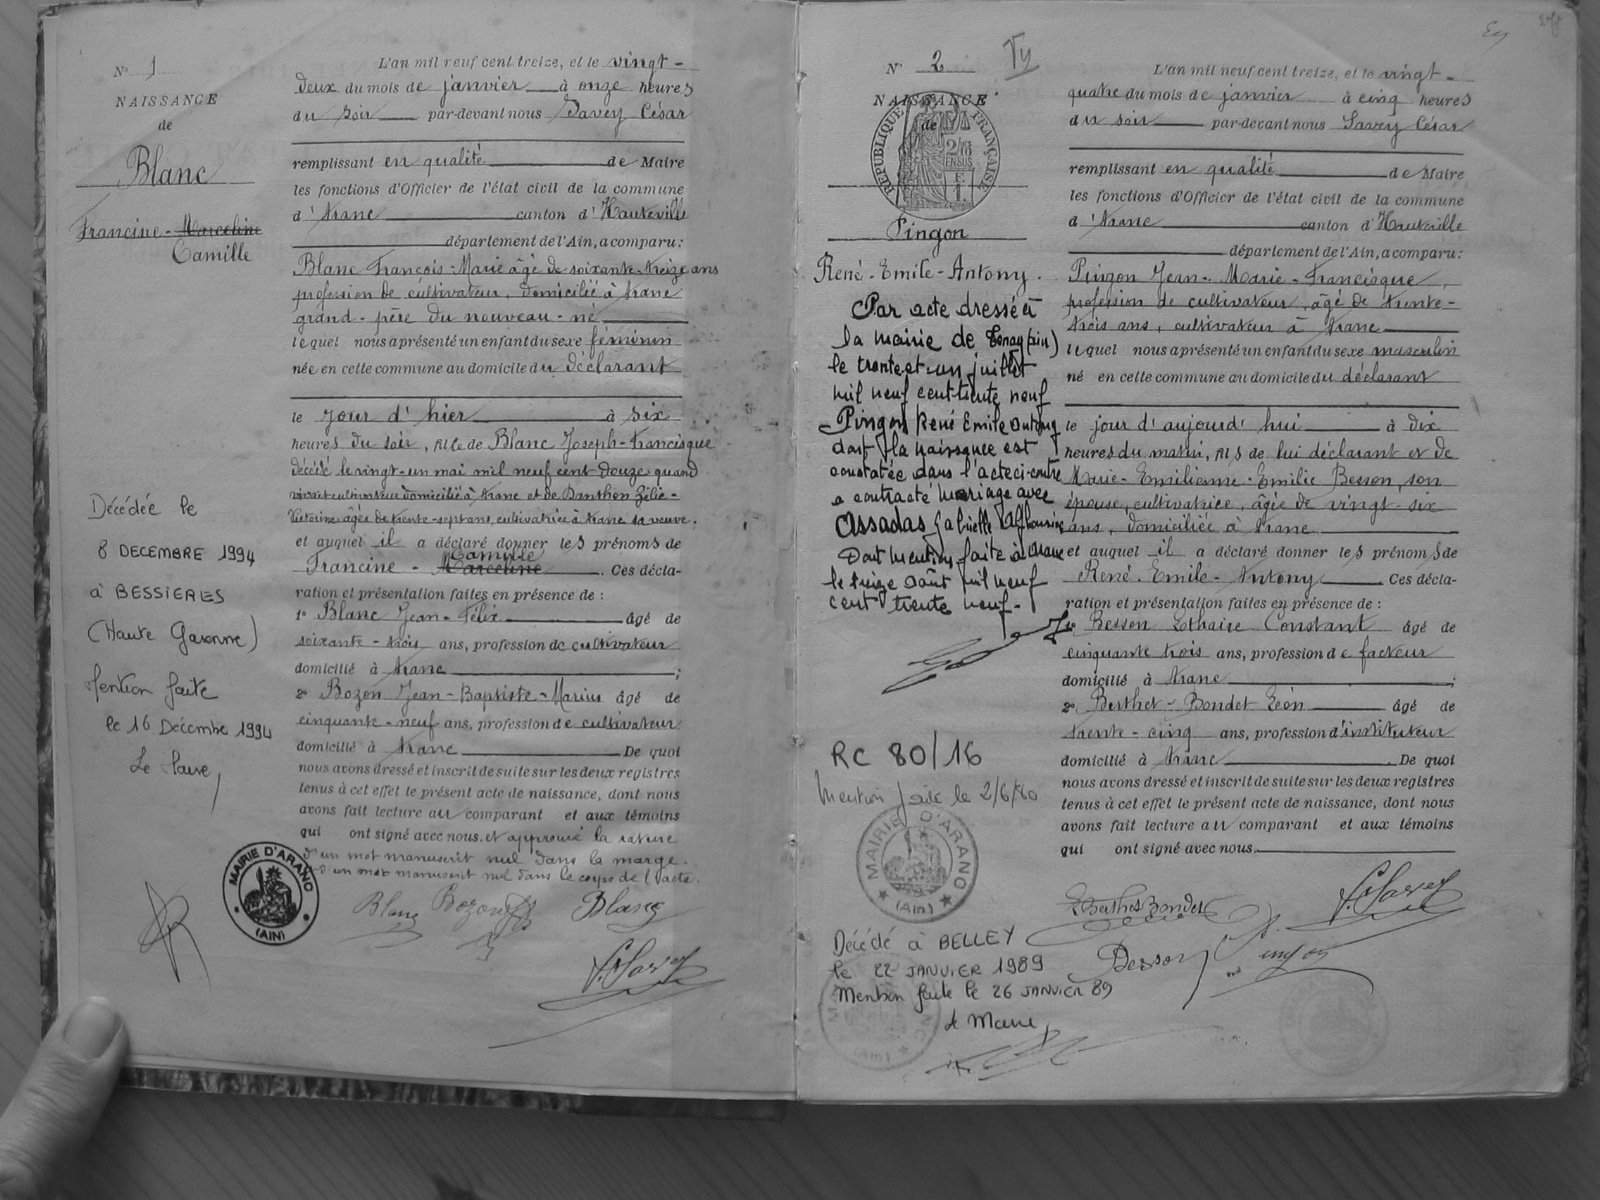 N° 1
NAISSANCE
de
Blanc
Francine - Marceline
Camille
Décédée le
8 DECEMBRE 1994
à BESSIERES
(Haute Garonne)
Mention faite
le 16 Décembre 1994
Le Maire,
MAIRIE D'ARANC
(AIN)
L'an mil neuf cent treize, et le vingt-
deux du mois de janvier à onze heures
du soir par-devant nous Savey César
remplissant en qualité de Maire
les fonctions d'Officier de l'état civil de la commune
d'Aranc canton d'Hauteville
département de l'Ain, a comparu:
Blanc François-Marie âgé de soixante-treize ans
profession de cultivateur, domicilié à Aranc
grand-père du nouveau-né
lequel nous a présenté un enfant du sexe féminin
née en cette commune au domicile du déclarant
le jour d'hier à six
heures du soir, fille de Blanc Joseph-Francisque
décédé le vingt-un mai mil neuf cent douze quand
vivait cultivateur domicilié à Aranc et de Banthion Zélie-
Victorine âgée de trente-sept ans, cultivatrice à Aranc sa veuve.
et auquel il a déclaré donner les prénoms de
Camille
Francine - Marceline. Ces décla-
ration et présentation faites en présence de :
1° Blanc Jean-Félix âgé de
soixante-trois ans, profession de cultivateur
domicilié à Aranc ;
2° Bozon Jean-Baptiste-Marius âgé de
cinquante-neuf ans, profession de cultivateur
domicilié à Aranc De quoi
nous avons dressé et inscrit de suite sur les deux registres
tenus à cet effet le présent acte de naissance, dont nous
avons fait lecture au comparant et aux témoins
qui ont signé avec nous, et approuvé la rature
d'un mot manuscrit nul dans la marge.
d'un mot manuscrit nul dans le corps de l'acte.
Blanc Bozon Blanc
C. Savey
N° 2
NAISSANCE
de
REPUBLIQUE FRANÇAISE
Pingon
René-Emile-Antony.
Par acte dressé à
la mairie de Tenay (Ain)
le trente et un juillet
mil neuf cent trente neuf
Pingon René Emile Antony
dont la naissance est
constatée dans l'acte ci-contre
a contracté mariage avec
Assadas Gabrielle Alphonsine
Dont mention faite à Aranc
le treize août mil neuf
cent trente neuf.
RC 80/16
Mention faite le 2/6/80
MAIRIE D'ARANC
(Ain)
Décédé à BELLEY
le 22 JANVIER 1989
Mention faite le 26 JANVIER 89
Le Maire,
L'an mil neuf cent treize, et le vingt-
quatre du mois de janvier à cinq heures
du soir par-devant nous Savey César
remplissant en qualité de Maire
les fonctions d'Officier de l'état civil de la commune
d'Aranc canton d'Hauteville
département de l'Ain, a comparu:
Pingon Jean-Marie-Francisque,
profession de cultivateur, âgé de trente-
trois ans, cultivateur à Aranc
lequel nous a présenté un enfant du sexe masculin
né en cette commune au domicile du déclarant
le jour d'aujourd'hui à dix
heures du matin, fils de lui déclarant et de
Marie-Emilienne-Emilie Besson, son
épouse, cultivatrice, âgée de vingt-six
ans, domiciliée à Aranc
et auquel il a déclaré donner les prénoms de
René-Emile-Antony. Ces décla-
ration et présentation faites en présence de :
1° Besson Lothaire Constant âgé de
cinquante trois ans, profession de facteur
domicilié à Aranc ;
2° Berthet-Bondet Léon âgé de
trente-cinq ans, profession d'instituteur
domicilié à Aranc. De quoi
nous avons dressé et inscrit de suite sur les deux registres
tenus à cet effet le présent acte de naissance, dont nous
avons fait lecture au comparant et aux témoins
qui ont signé avec nous.
L Berthet Bondet C. Savey
Besson Pingon